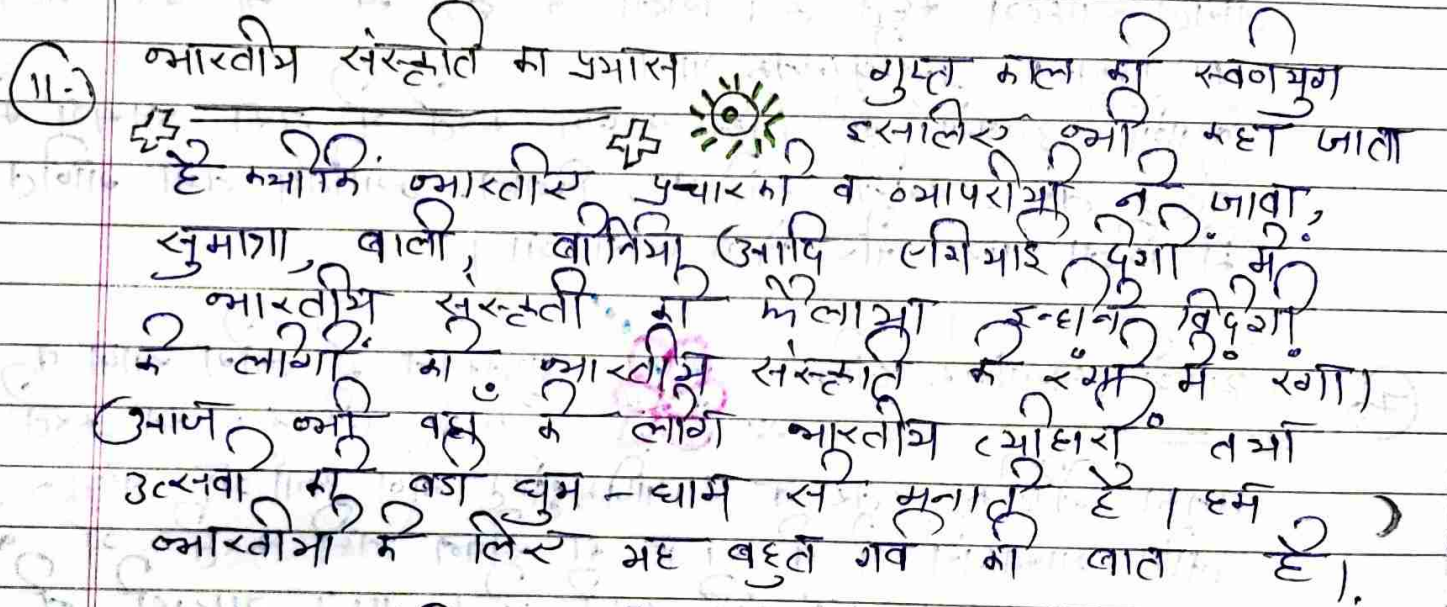 11-) भारतीय संस्कृति का प्रसार गुप्त काल को स्वर्णयुग
इसलिए भी कहा जाता
है क्योंकि भारतीए प्रचारको व व्यापरीयों ने जावा,
सुमात्रा, बाली, बोर्नियो आदि एशियाई देशों में
भारतीय संस्कृती को फैलाया इन्होंने विदेशों
के लोगों को भारतीय संस्कृति के रंगों में रंगा।
आज भी वहाँ के लोग भारतीय त्यौहारों तथा
उत्सवों को बडी धुम-धाम से मनाते है। हम
भारतीयों के लिए यह बहुत गर्व की बात है।